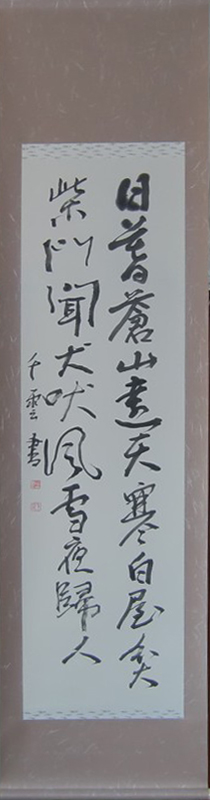 日暮蒼山遠天寒白屋貧
柴門聞犬吠風雪夜歸人
千雲書